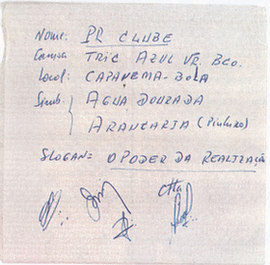 Nome: PR CLUBE
Camisa TRIC AZUL VR. BCO.
Local: CAPANEMA-BOLA
Simb ÁGUA DOURADA
ARAUCARIA (Pinheiro)
SLOGAN = O PODER DA REALIZAÇÃO